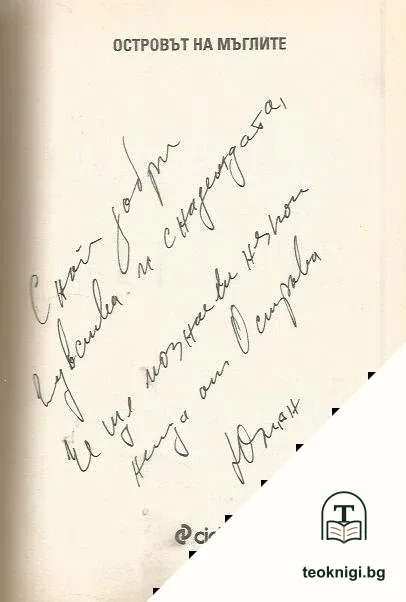 ОСТРОВЪТ НА МЪГЛИТЕ
С най добри
чувства и с надеждата,
че ще познаеш някои
неща от Острова
Юлиан
ciela
teoknigi.bg